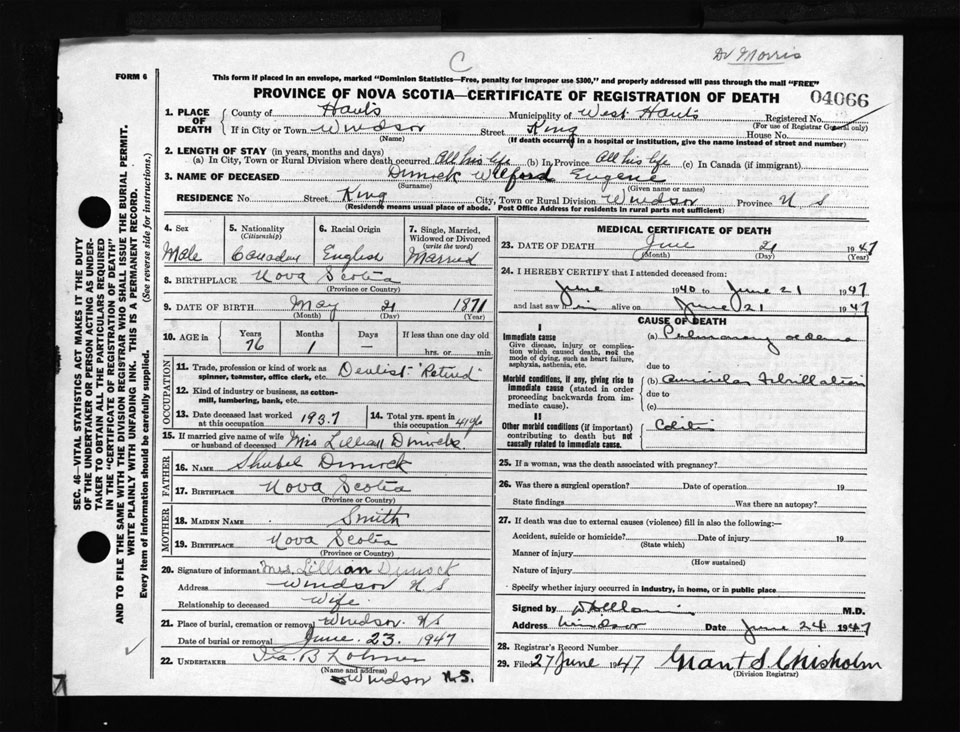 Dr Morris
C
FORM 6
This form if placed in an envelope, marked "Dominion Statistics—Free, penalty for improper use $300," and properly addressed will pass through the mail "FREE"
PROVINCE OF NOVA SCOTIA—CERTIFICATE OF REGISTRATION OF DEATH 04066
1. PLACE OF DEATH County of Hants Municipality of West Hants Registered No.
(For use of Registrar General only)
If in City or Town Windsor Street King House No.
(Name) (If death occurred in a hospital or institution, give the name instead of street and number)
2. LENGTH OF STAY (in years, months and days)
(a) In City, Town or Rural Division where death occurred All his life (b) In Province All his life (c) In Canada (if immigrant)
3. NAME OF DECEASED Dimock Wilford Eugene
(Surname) (Given name or names)
RESIDENCE No. Street King City, Town or Rural Division Windsor Province N S
(Residence means usual place of abode. Post Office Address for residents in rural parts not sufficient)
4. Sex
Male
5. Nationality
(Citizenship)
Canadian
6. Racial Origin
English
7. Single, Married,
Widowed or Divorced
(write the word)
Married
8. BIRTHPLACE Nova Scotia
(Province or Country)
9. DATE OF BIRTH May 21 1871
(Month) (Day) (Year)
10. AGE in Years Months Days If less than one day old
76 1 hrs. or min.
OCCUPATION
11. Trade, profession or kind of work as Dentist "Retired"
spinner, teamster, office clerk, etc.
12. Kind of industry or business, as cotton-
mill, lumbering, bank, etc.
13. Date deceased last worked
at this occupation 1937
14. Total yrs. spent in
this occupation
15. If married give name of wife
or husband of deceased Mrs Lillian Dimock
FATHER
16. NAME Shubel Dimock
17. BIRTHPLACE Nova Scotia
(Province or Country)
MOTHER
18. MAIDEN NAME Smith
19. BIRTHPLACE Nova Scotia
(Province or Country)
20. Signature of informant Mrs. Lillian Dimock
Address Windsor N. S
Relationship to deceased Wife
21. Place of burial, cremation or removal Windsor NS
Date of burial or removal June. 23. 1947
22. UNDERTAKER Ira. B
(Name and address)
Windsor N.S.
MEDICAL CERTIFICATE OF DEATH
23. DATE OF DEATH June 21 1947
(Month) (Day) (Year)
24. I HEREBY CERTIFY that I attended deceased from:
June 1940 to June 21 1947
and last saw him alive on June 21 1947
CAUSE OF DEATH
I
Immediate cause (a) Pulmonary oedema
Give disease, injury or complica-
tion which caused death, not the
mode of dying, such as heart failure,
asphyxia, asthenia, etc.
due to
Morbid conditions, if any, giving rise to
immediate cause (stated in order
proceeding backwards from im-
mediate cause).
(b) Auricular Fibrillation
due to
(c)
II
Other morbid conditions (if important)
contributing to death but not
causally related to immediate cause.
25. If a woman, was the death associated with pregnancy?
26. Was there a surgical operation? Date of operation 19
State findings Was there an autopsy?
27. If death was due to external causes (violence) fill in also the following:—
Accident, suicide or homicide? Date of injury 19
(State which)
Manner of injury
(How sustained)
Nature of injury
Specify whether injury occurred in industry, in home, or in public place
Signed by M.D.
Address Windsor Date June 24 1947
28. Registrar's Record Number
29. Filed 27 June 1947 Grant S. Chisholm
(Division Registrar)
SEC. 46—VITAL STATISTICS ACT MAKES IT THE DUTY
OF THE UNDERTAKER OR PERSON ACTING AS UNDER-
TAKER TO OBTAIN ALL THE PARTICULARS REQUIRED
IN THE "CERTIFICATE OF REGISTRATION OF DEATH"
AND TO FILE THE SAME WITH THE DIVISION REGISTRAR WHO SHALL ISSUE THE BURIAL PERMIT.
WRITE PLAINLY WITH UNFADING INK. THIS IS A PERMANENT RECORD.
Every item of information should be carefully supplied. (See reverse side for instructions.)